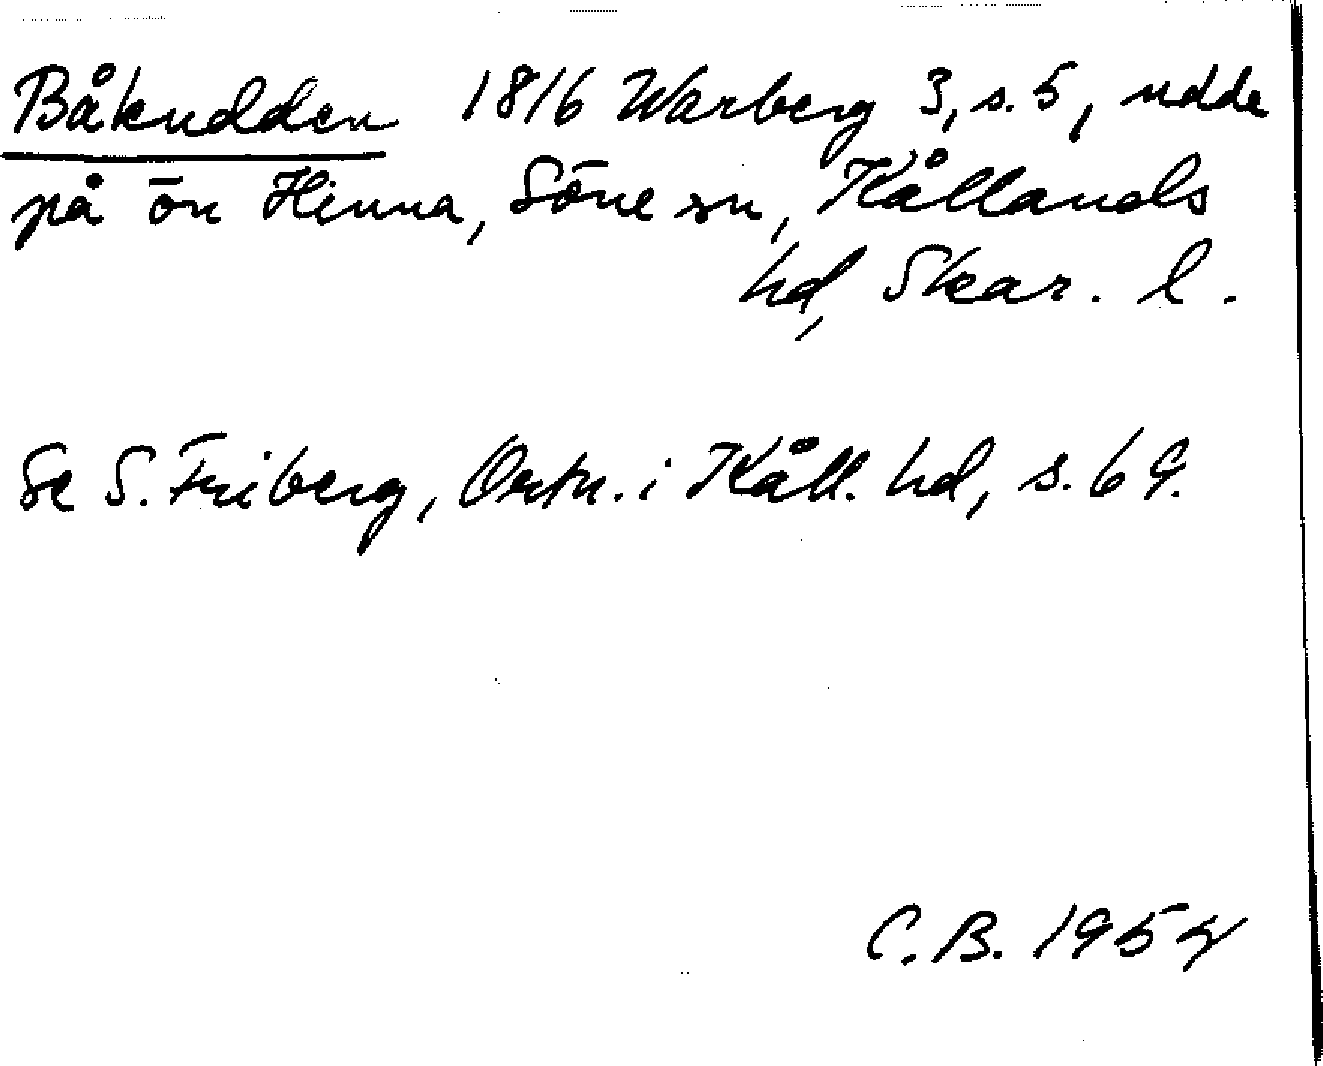 Båkudden 1816 Warberg 3, s. 5, udde
på ön Hinna, Söne sn, Kållands
hd, Skar. l.
Se S. Friberg, Ortn. i Kåll. hd, s. 69.
C. B. 1954